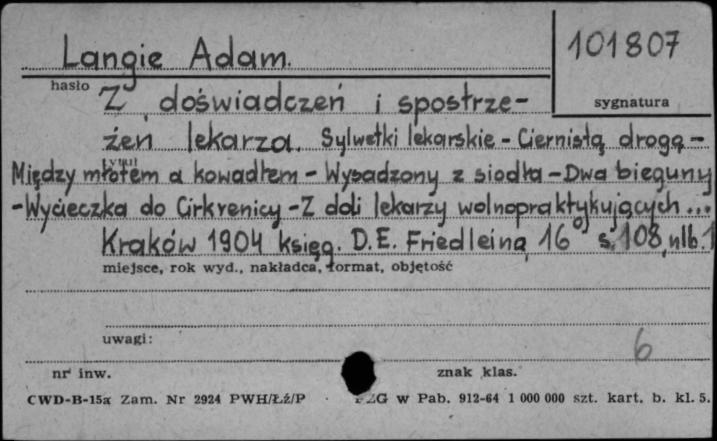 Langie Adam.
101807
hasło
sygnatura
Z doświadczeń i spostrze-
żeń lekarza. Sylwetki lekarskie - Ciernistą drogą -
tytuł
Między młotem a kowadłem - Wysadzony z siodła - Dwa bieguny
- Wycieczka do Cirkvenicy - Z doli lekarzy wolnopraktykujących ...
Kraków 1904 księg. D.E. Friedleina 16° s. 108, nlb. 1
miejsce, rok wyd., nakładca, format, objętość
uwagi:
6
nr inw.
znak klas.
CWD-B-15a Zam. Nr 2924 PWH/Łź/P
w Pab. 912-64 1 000 000 szt. kart. b. kl. 5.